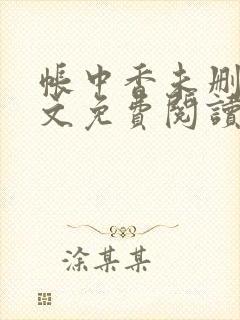 帳中香未刪
文免費閱讀
涂某某